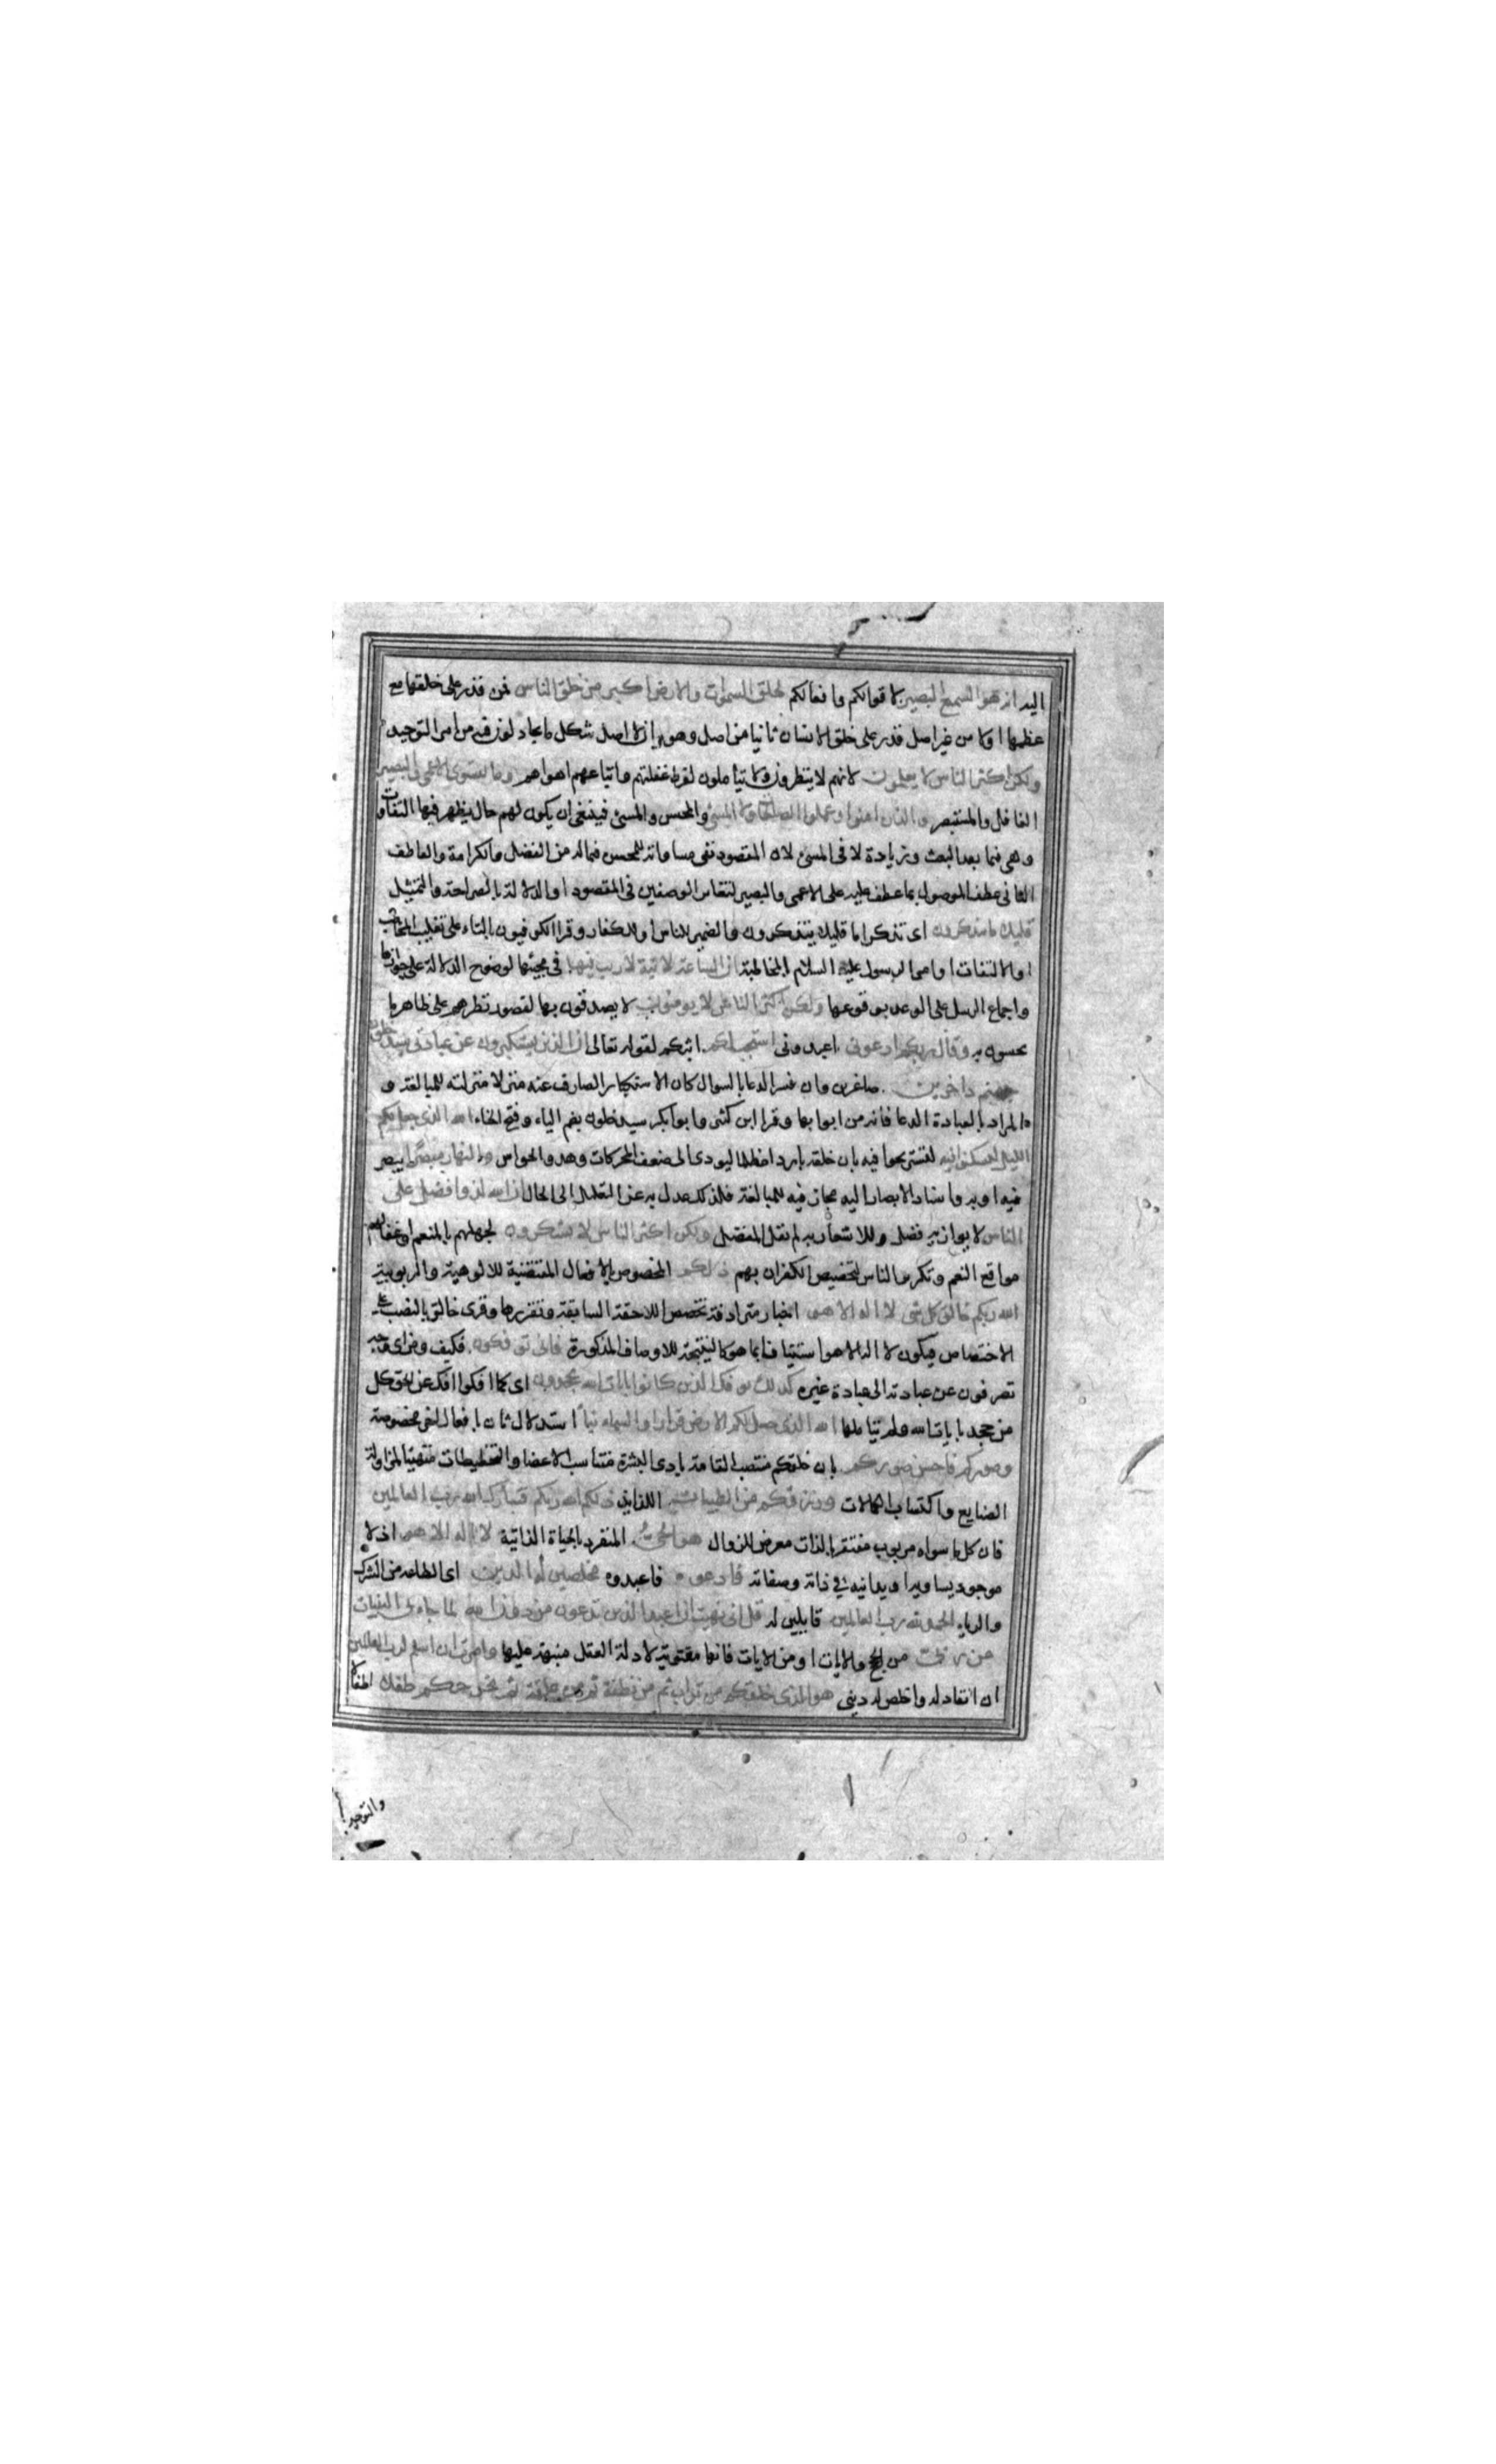 اليه انه هو السميع البصير لاقوالكم وافعالكم لخلق السموات والارض اكبر من خلق الناس فمن قدر على خلقها مع
عظمها اولا من غير اصل قدر على خلق الانسان ثانيا من اصل وهو بيان لاشكل ما يجادلون فيه من امر التوحيد
ولكن اكثر الناس لا يعلمون لانهم لا ينظرون ولا يتأملون لفرط غفلتهم واتباعهم اهواهم وما يستوى الاعمى والبصير
الغافل والمستبصر والذين امنوا وعملوا الصالحات ولا المسئ والمحسن والمسئ فينبغى ان يكون لهم حال يظهر فيها التفاوت
وهى فيما بعد البعث وزيادة لا فى المسئ لان المقصود نفى مساواته للمحسن فيما له من الفضل والكرامة والعاطف
الثانى عطف الموصول بما عطف عليه على الاعمى والبصير لتغاير الوصفين فى المقصود او الدلالة بالصراحة والتمثيل
قليلا ما تتذكرون اى تذكرا ما قليلا يتذكرون والضمير للناس او الكفار وقرا الكوفيون بالتاء على تغليب المخاطب
او الالتفات او امر الرسول عليه السلام بالمخاطبة ان الساعة لاتية لا ريب فيها فى مجيئها لوضوح الدلالة على جوازها
واجماع الرسل على الوعد بوقوعها ولكن اكثر الناس لا يومنون لا يصدقون بها لقصور نظرهم على ظاهر ما
يحسون به وقال ربكم ادعونى اعبدونى استجب لكم اثبكم لقوله تعالى ان الذين يستكبرون عن عبادتى سيدخلون
جهنم داخرين صاغرين وان فسر الدعا بالسوال كان الاستكبار الصارف عنه منزلا منزلته للمبالغة و
المراد بالعبادة الدعا فانه من ابوابها وقرا ابن كثير وابو بكر سيدخلون بضم الياء وفتح الخاء الله الذى جعل لكم
الليل لتسكنوا فيه لتستريحوا فيه بان خلقه باردا مظلما ليودى الى ضعف المحركات وهدو الحواس والنهار مبصرا يبصر
فيه او به واسناد الابصار اليه مجاز فيه للمبالغة فلذلك عدل به عن التعليل الى الحال ان الله لذو افضل على
الناس لا يوازيه فضل وللاشعار به لم يقل المفضل ولكن اكثر الناس لا يشكرون لجهلهم بالمنعم او غفالهم
مواقع النعم وتكرير الناس لتخصيص الكفران بهم ذلكم المخصوص بالافعال المقتضية للالوهية والربوبية
الله ربكم خالق كل شى لا اله الا هو اخبار مترادفة تخصص اللاحقة السابقة وتقررها وقرى خالق بالنصب على
الاختصاص فيكون لا اله الا هو استينافا بما هو كالنتيجة للاوصاف المذكورة فانى توفكون فكيف ومن اى وجه
تصرفون عن عبادته الى عبادة غيره كذلك يوفك الذين كانوا بايات الله يجحدون اى كما افكوا افك عن الحق كل
من جحد بايات الله ولم يتاملها الله الذى جعل لكم الارض قرارا والسماء بنا استدلال ثان بافعال اخر مخصوصة
وصوركم فاحسن صوركم بان خلقكم منتصب القامة بادى البشرة متناسب الاعضا والتخطيطات متهيئا لمزاولة
الصنايع واكتساب الكمالات ورزقكم من الطيبات اللذايذ ذلكم الله ربكم فتبارك الله رب العالمين
فان كل ما سواه مربوب مفتقر بالذات معرض للزوال هو الحى المتفرد بالحياة الذاتية لا اله الا هو اذ لا
موجود يساويه او يدانيه فى ذاته وصفاته فادعوه فاعبدوه مخلصين له الدين اى الطاعه من الشرك
والرياء الحمد لله رب العالمين قايلين له قل انى نهيت ان اعبد الذين تدعون من دون الله لما جاءنى البينات
من ربى من الحج والايات او من الايات فانها مقوية لادلة العقل منبهة عليها وامرت ان اسلم لرب العالمين
ان انقاد له واخلص له دينى هو الذى خلقكم من تراب ثم من نطفة ثم من علقة ثم يخرجكم طفلا اطفالا
والتوحيد